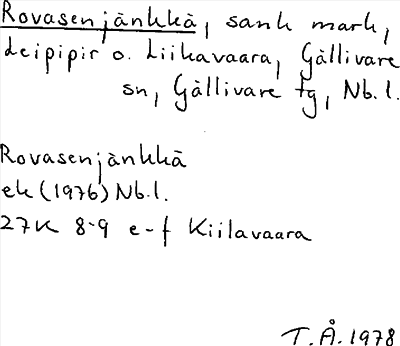 Rovasenjänkkä, sank mark,
deipipir o. Liikavaara, Gällivare
sn, Gällivare tg, Nb.l.
Rovasenjänkkä
ek (1976) Nb.l.
27K 8-9 e-f Kiilavaara
T.Å. 1978